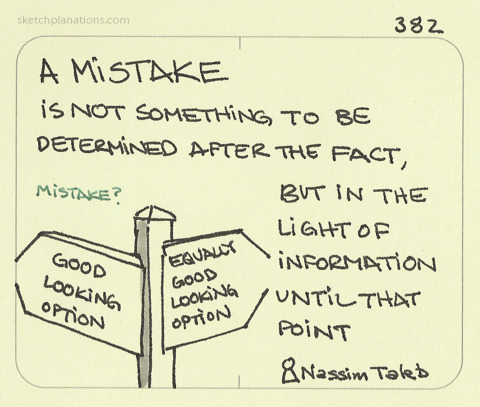 sketchplanations.com
382
A MiSTAKE
iS NOT SOMETHING TO BE
DETERMINED AFTER THE FACT,
MiSTAKE?
BUT IN THE
LIGHT OF
iNFORMATION
UNTIL THAT
POINT
GOOD
LOOKING
OPTION
EQUALLY
GOOD
LOOKING
OPTION
Nassim Taleb